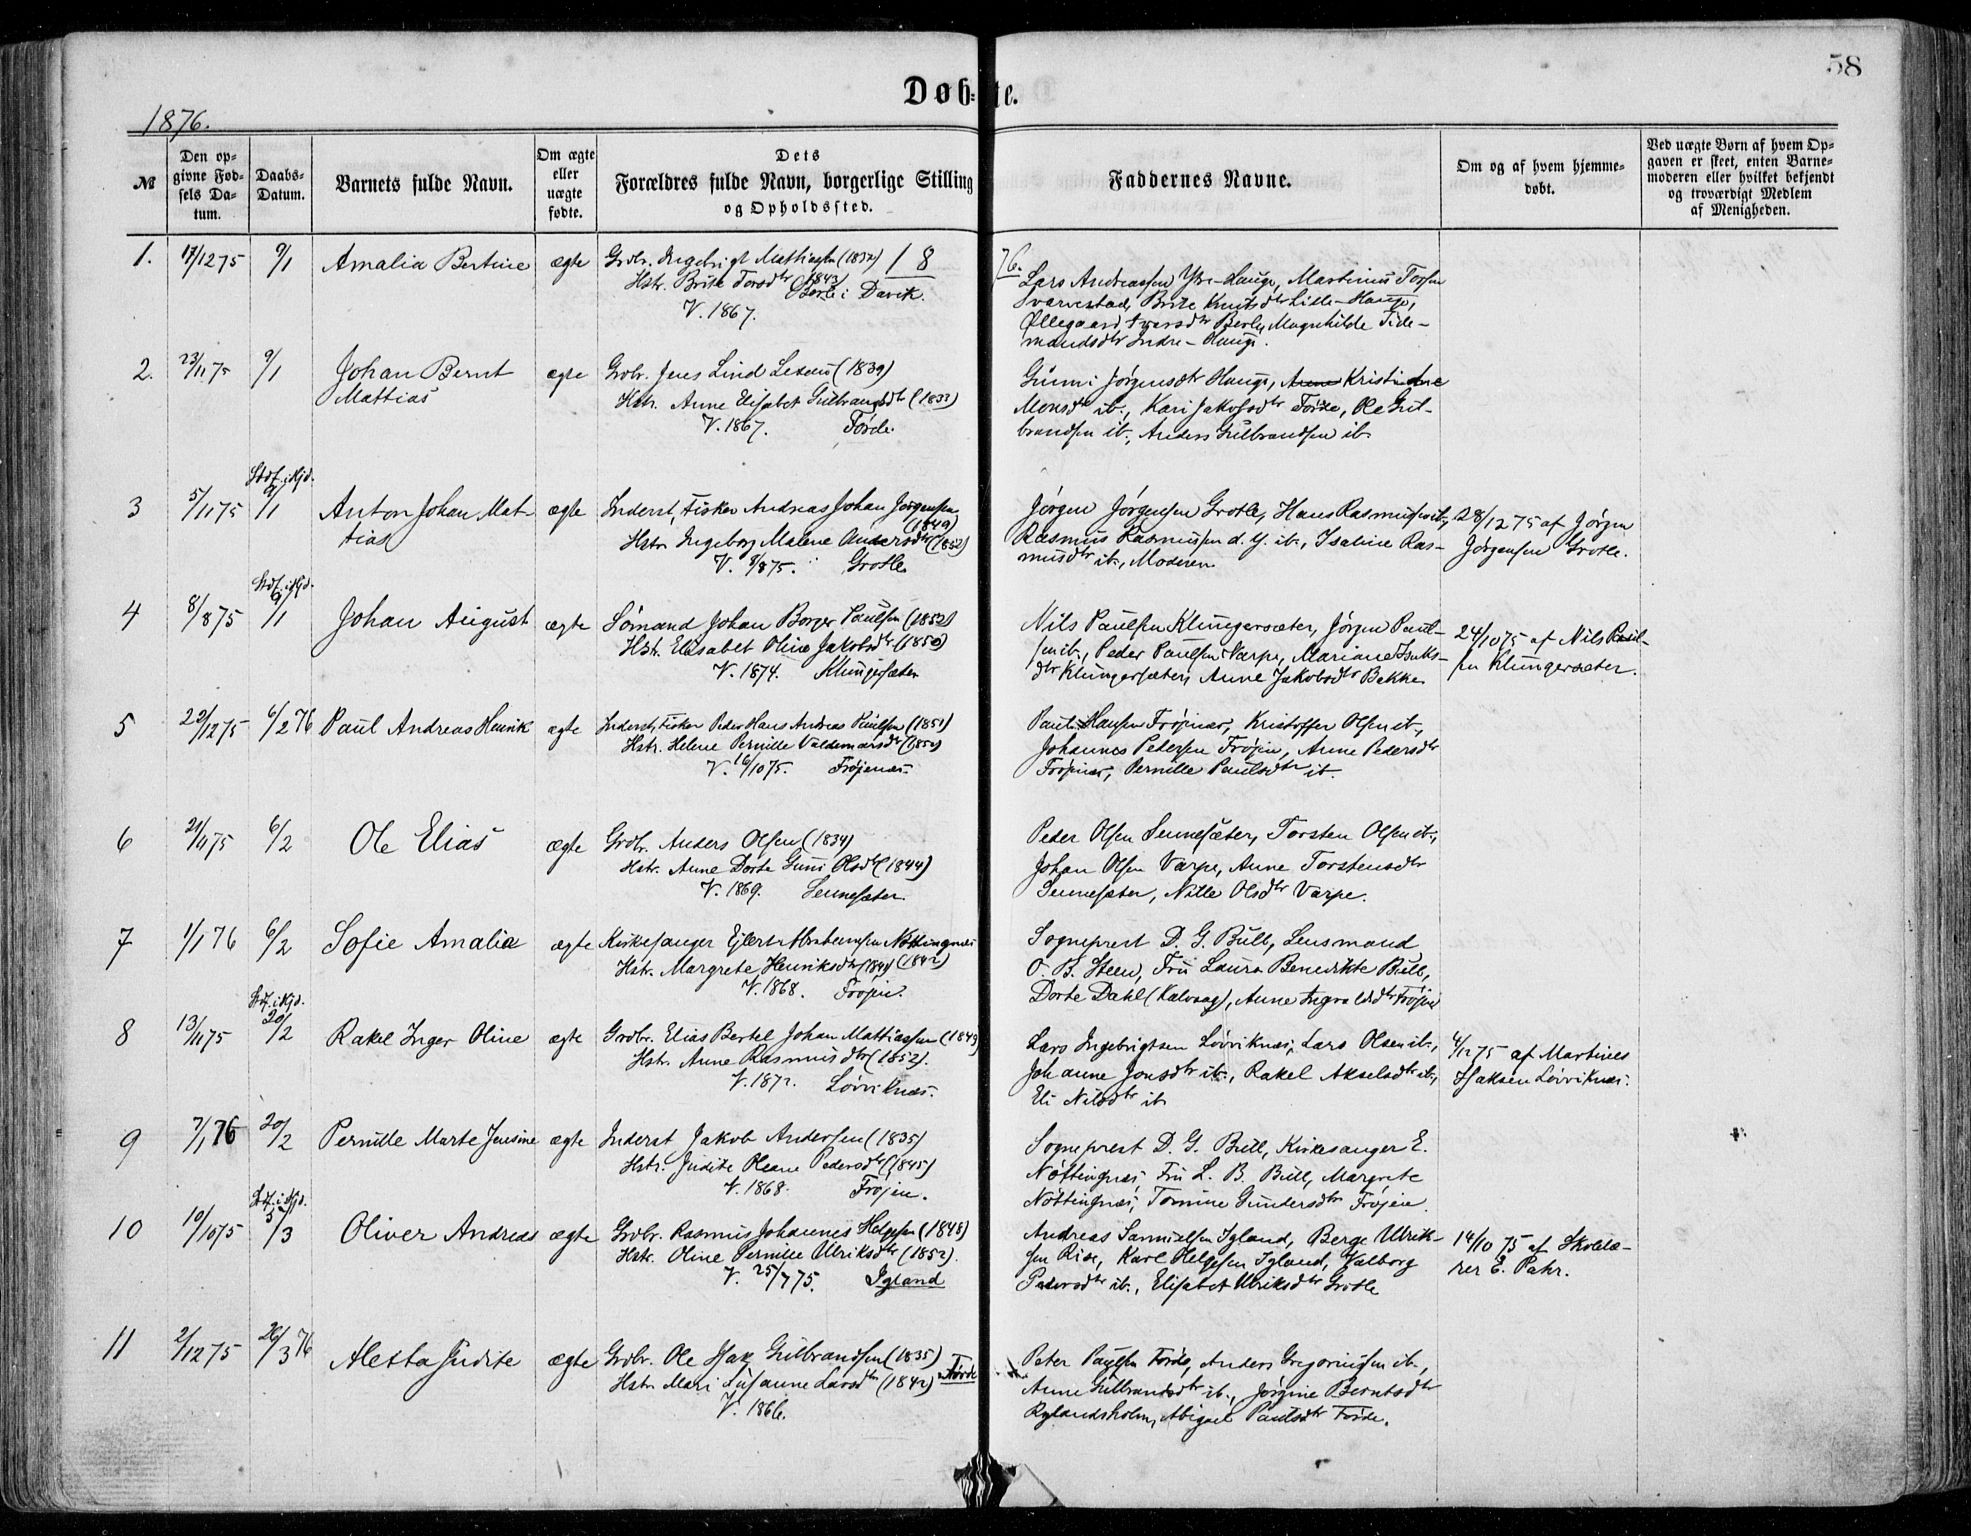 58
Døb-te.
1876.
№
Den op-
givne Fød-
sels Da-
tum.
Daabs-
Datum.
Barnets fulde Navn.
Om ægte
eller
uægte
fødte.
Dets
Forældres fulde Navn, borgerlige Stilling
og Opholdssted.
Faddernes Navne.
Om og af hvem hjemme-
døbt.
Ved uægte Børn af hvem Op-
gaven er skeet, enten Barne-
moderen eller hvilket bekjendt
og troværdigt Medlem
af Menigheden.
18 76.
1. 17/12 75 9/1 Amalia Bertine ægte Grdbr. Ingebrigt Mattiassen (1832)
Hstr. Brite Torsdtr (1843)
Berle i Davik.
V. 1867.
Lars Andreassen Ytre-Hauge, Martinus Torsen
Svarvestad, Brite Knutsdtr Lille-Hauge,
Øllegaard Ivarsdtr Berle, Magnhilde Tide-
mandsdtr Indre-Hauge.
2. 23/11 75 9/1 Johan Bernt
Mattias
ægte Grdbr. Jens Lind (1839)
Hstr. Anne Elisabet Gulbrandsdtr (1833)
V. 1867. Førde.
Gunni Jørgensdtr Hauge, Kristine
Monsdtr ib., Kari Jakobsdtr Førde, Ole Gul-
brandsen ib., Anders Gulbrandsen ib.
3 5/11 75 Stdf. i Kjd.
9/1 Anton Johan Mat-
tias
ægte Inderst, Fisker Andreas Johan Jørgensen
(1849)
Hstr. Ingeborg Malene Andersdtr (1852)
V. 8/8 75. Grotle
Jørgen Jørgensen Grotle, Hans Rasmussen ib.,
Rasmus Rasmussen d. y. ib., Isabine Ras-
musdtr ib., Moderen
28/12 75 af Jørgen
Jørgensen Grotle.
4 8/8 75 Stdf. i Kjd.
9/1 Johan August ægte Sømand Johan Borger Paulsen (1852)
Hstr. Elisabet Oline Jakobsdtr (1850)
V. 1874. Klungesæter
Nils Paulsen Klungersæter, Jørgen Paul-
sen ib., Peder Paulsen Varpe, Mariane Isaks-
dtr Klungersæter, Anne Jakobsdtr Bakke
24/10 75 af Nils Paul-
sen Klungersæter.
5 22/12 75 6/2 76 Paul Andreas Henrik ægte Inderst, Fisker Peder Hans Andreas Paulsen (1851)
Hstr. Helene Pernille Valdemarsdtr (1850)
V. 16/10 75. Frøjenes.
Paul Hansen Frøjnes, Kristoffer Olsen ib.,
Johannes Pedersen Frøjen, Anne Pedersdtr
Frøjnes, Pernille Paulsdtr ib.
6 21/11 75 6/2 Ole Elias ægte Grdbr. Anders Olsen (1834)
Hstr. Anne Dorte Guni Olsdtr (1844)
V. 1869. Sennesæter.
Peder Olsen Sennesæter, Torsten Olsen ib.,
Johan Olsen Varpe, Anne Torstensdtr
Sennesæter, Nille Olsdtr Varpe.
7 1/1 76 6/2 Sofie Amalia ægte Kirkesanger Ejlert Abrahamsen Nøttingnæs
(1842)
Hstr. Margrete Henriksdtr (1841)
V. 1868. Frøjen.
Sogneprest D. G. Bull, Lensmand
O. B. Steen, Fru Laura Benedikte Bull,
Dorte Dahl (Kalvaag), Anne Ingvaldsdtr Frøjen
8 13/11 75 Stdf. i Kjd.
20/2 Rakel Inger Oline ægte Grdbr. Elias Bertel Johan Mattiassen (1849)
Hstr. Anne Rasmusdtr (1852).
V. 1872. Løvviknæs.
Lars Ingebrigtsen Løvviknæs, Lars Olsen ib.,
Johanne Jonsdtr ib., Rakel Akselsdtr ib.,
Eli Nilsdtr ib
4/12 75 af Martines
Isaksen Løvviknæs.
9 7/1 76 20/2 Pernille Marte Jensine ægte Inderst Jakob Andersen (1835)
Hstr. Judite Oleane Pedersdtr (1845)
V. 1868. Frøjen.
Sogneprest D. G. Bull, Kirkesanger E.
Nøttingnæs, Fru L. B. Bull, Margrete
Nøttingnæs, Tomine Gundersdtr Frøjen.
10 10/10 75 Stdf. i Kjd.
5/3 Oliver Andreas ægte Grdbr. Rasmus Johannes Helgesen (1848)
Hstr. Oline Pernille Ulriksdtr (1852).
V. 25/7 75. Igland
Andreas Samuelsen Igland, Berge Ulrik-
sen Rise, Karl Helgesen Igland, Valborg
Pedersdtr ib., Elisabet Ulriksdtr Grotle
14/10 75 af Skolelæ-
rer E. Pahr.
11 2/12 75 26/3 76 Aletta Judite ægte Grdbr. Ole Isak Gulbrandsen (1835)
Hstr. Mari Susanne Larsdtr (1842) Førde
V. 1866.
Peter Paulsen Førde, Anders Gregoriussen ib.,
Anne Gulbrandsdtr ib., Jørgine Berntsdtr
Rylandsholm, Abigael Paulsdtr Førde.